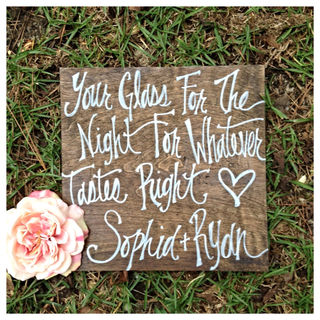 Your Glass For The
Night For Whatever
Tastes Right ♡
Sophia + Ryan